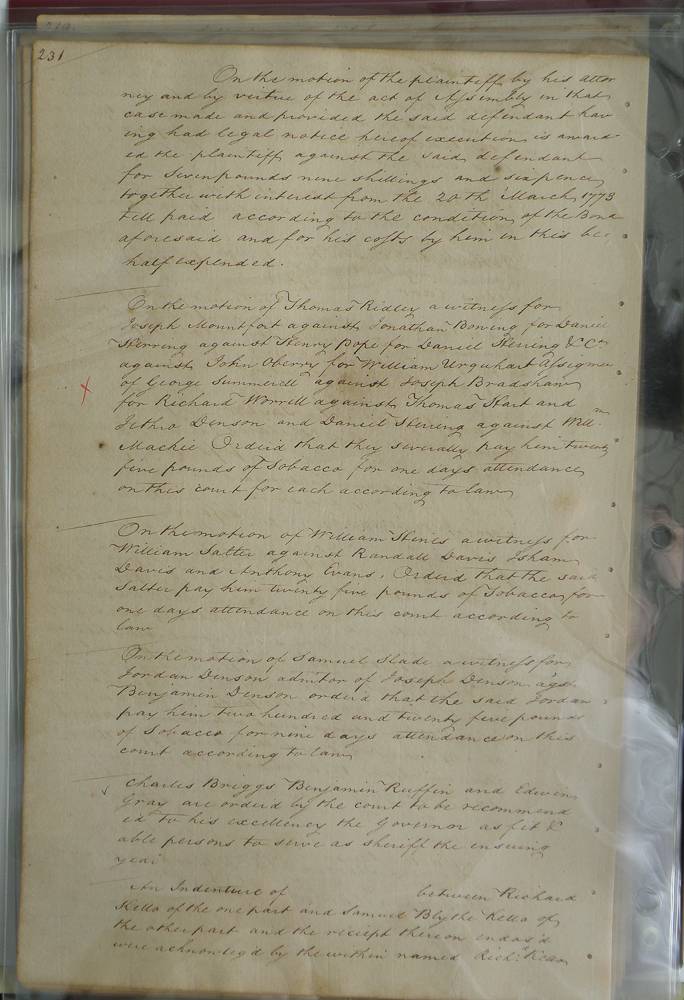 231
On the motion of the plaintiff by his attor
ney and by virtue of the act of Assembly in that
case made and provided the said defendant hav
ing had legal notice hereof execution is award
ed the plaintiff against the said defendant
for Seven pounds nine shillings and six pence
together with interest from the 20th March 1773
till paid according to the condition of the Bond
aforesaid and for his costs by him in this be
half expended.
On the motion of Thomas Ridley a witness for
Joseph Mountfort against Jonathan Bowing for Daniel
Herring against Henry Pope for Daniel Herring & Co
against John Oberry for William Urquhart Assignee
of George Summerell against Joseph Bradshaw
for Richard Worrell against Thomas Hart and
Jethro Denson and Daniel Herring against Willm
Mackie Orderd that they severally pay him twenty
five pounds of Tobacco for one days attendance
on this court for each according to law
On the motion of William Hines a witness for
William Salter against Randall Davis Isham
Davis and Anthony Evans, Orderd that the said
Salter pay him twenty five pounds of Tobacco for
one days attendance on this court according to
law
On the motion of Samuel Slade a witness for
Jordan Denson admitor of Joseph Denson agst
Benjamin Denson orderd that the said Jordan
pay him two hundred and twenty five pounds
of Tobacco for nine days attendance on this
court according to law
Charles Briggs Benjamin Ruffin and Edwin
Gray are orderd by the court to be recommend
ed to his excellency the Governor as fit &
able persons to serve as sheriff the ensuing
year
An Indenture of between Richard
Kello of the one part and Samuel Blythe Kello of
the other part and the reciept thereon endos'd
were acknowleg'd by the within named Richd Kello